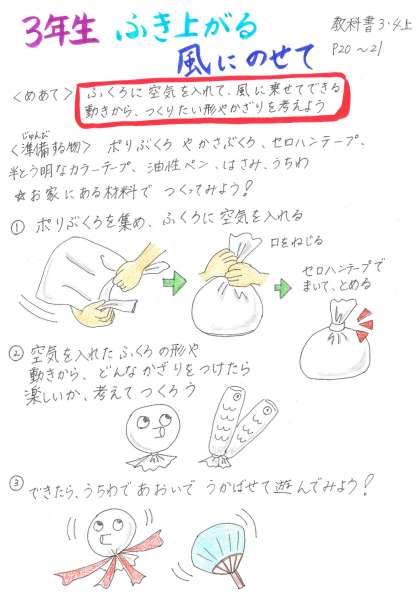 3年生 ふき上がる
風にのせて
教科書3・4上
P20～21
<めあて> ふくろに空気を入れて、風に乗せてできる
動きから、つくりたい形やかざりを考えよう
じゅんび
<準備する物> ポリぶくろ やかさぶくろ、セロハンテープ、
半とう明なカラーテープ、油性ペン、はさみ、うちわ
☆お家にある材料で つくってみよう!
① ポリぶくろを集め、ふくろに空気を入れる
口をねじる
セロハンテープで
まいて、とめる
② 空気を入れたふくろの形や
動きから、どんなかざりをつけたら
楽しいか、考えてつくろう
③ できたら、うちわであおいで うかばせて遊んでみよう!